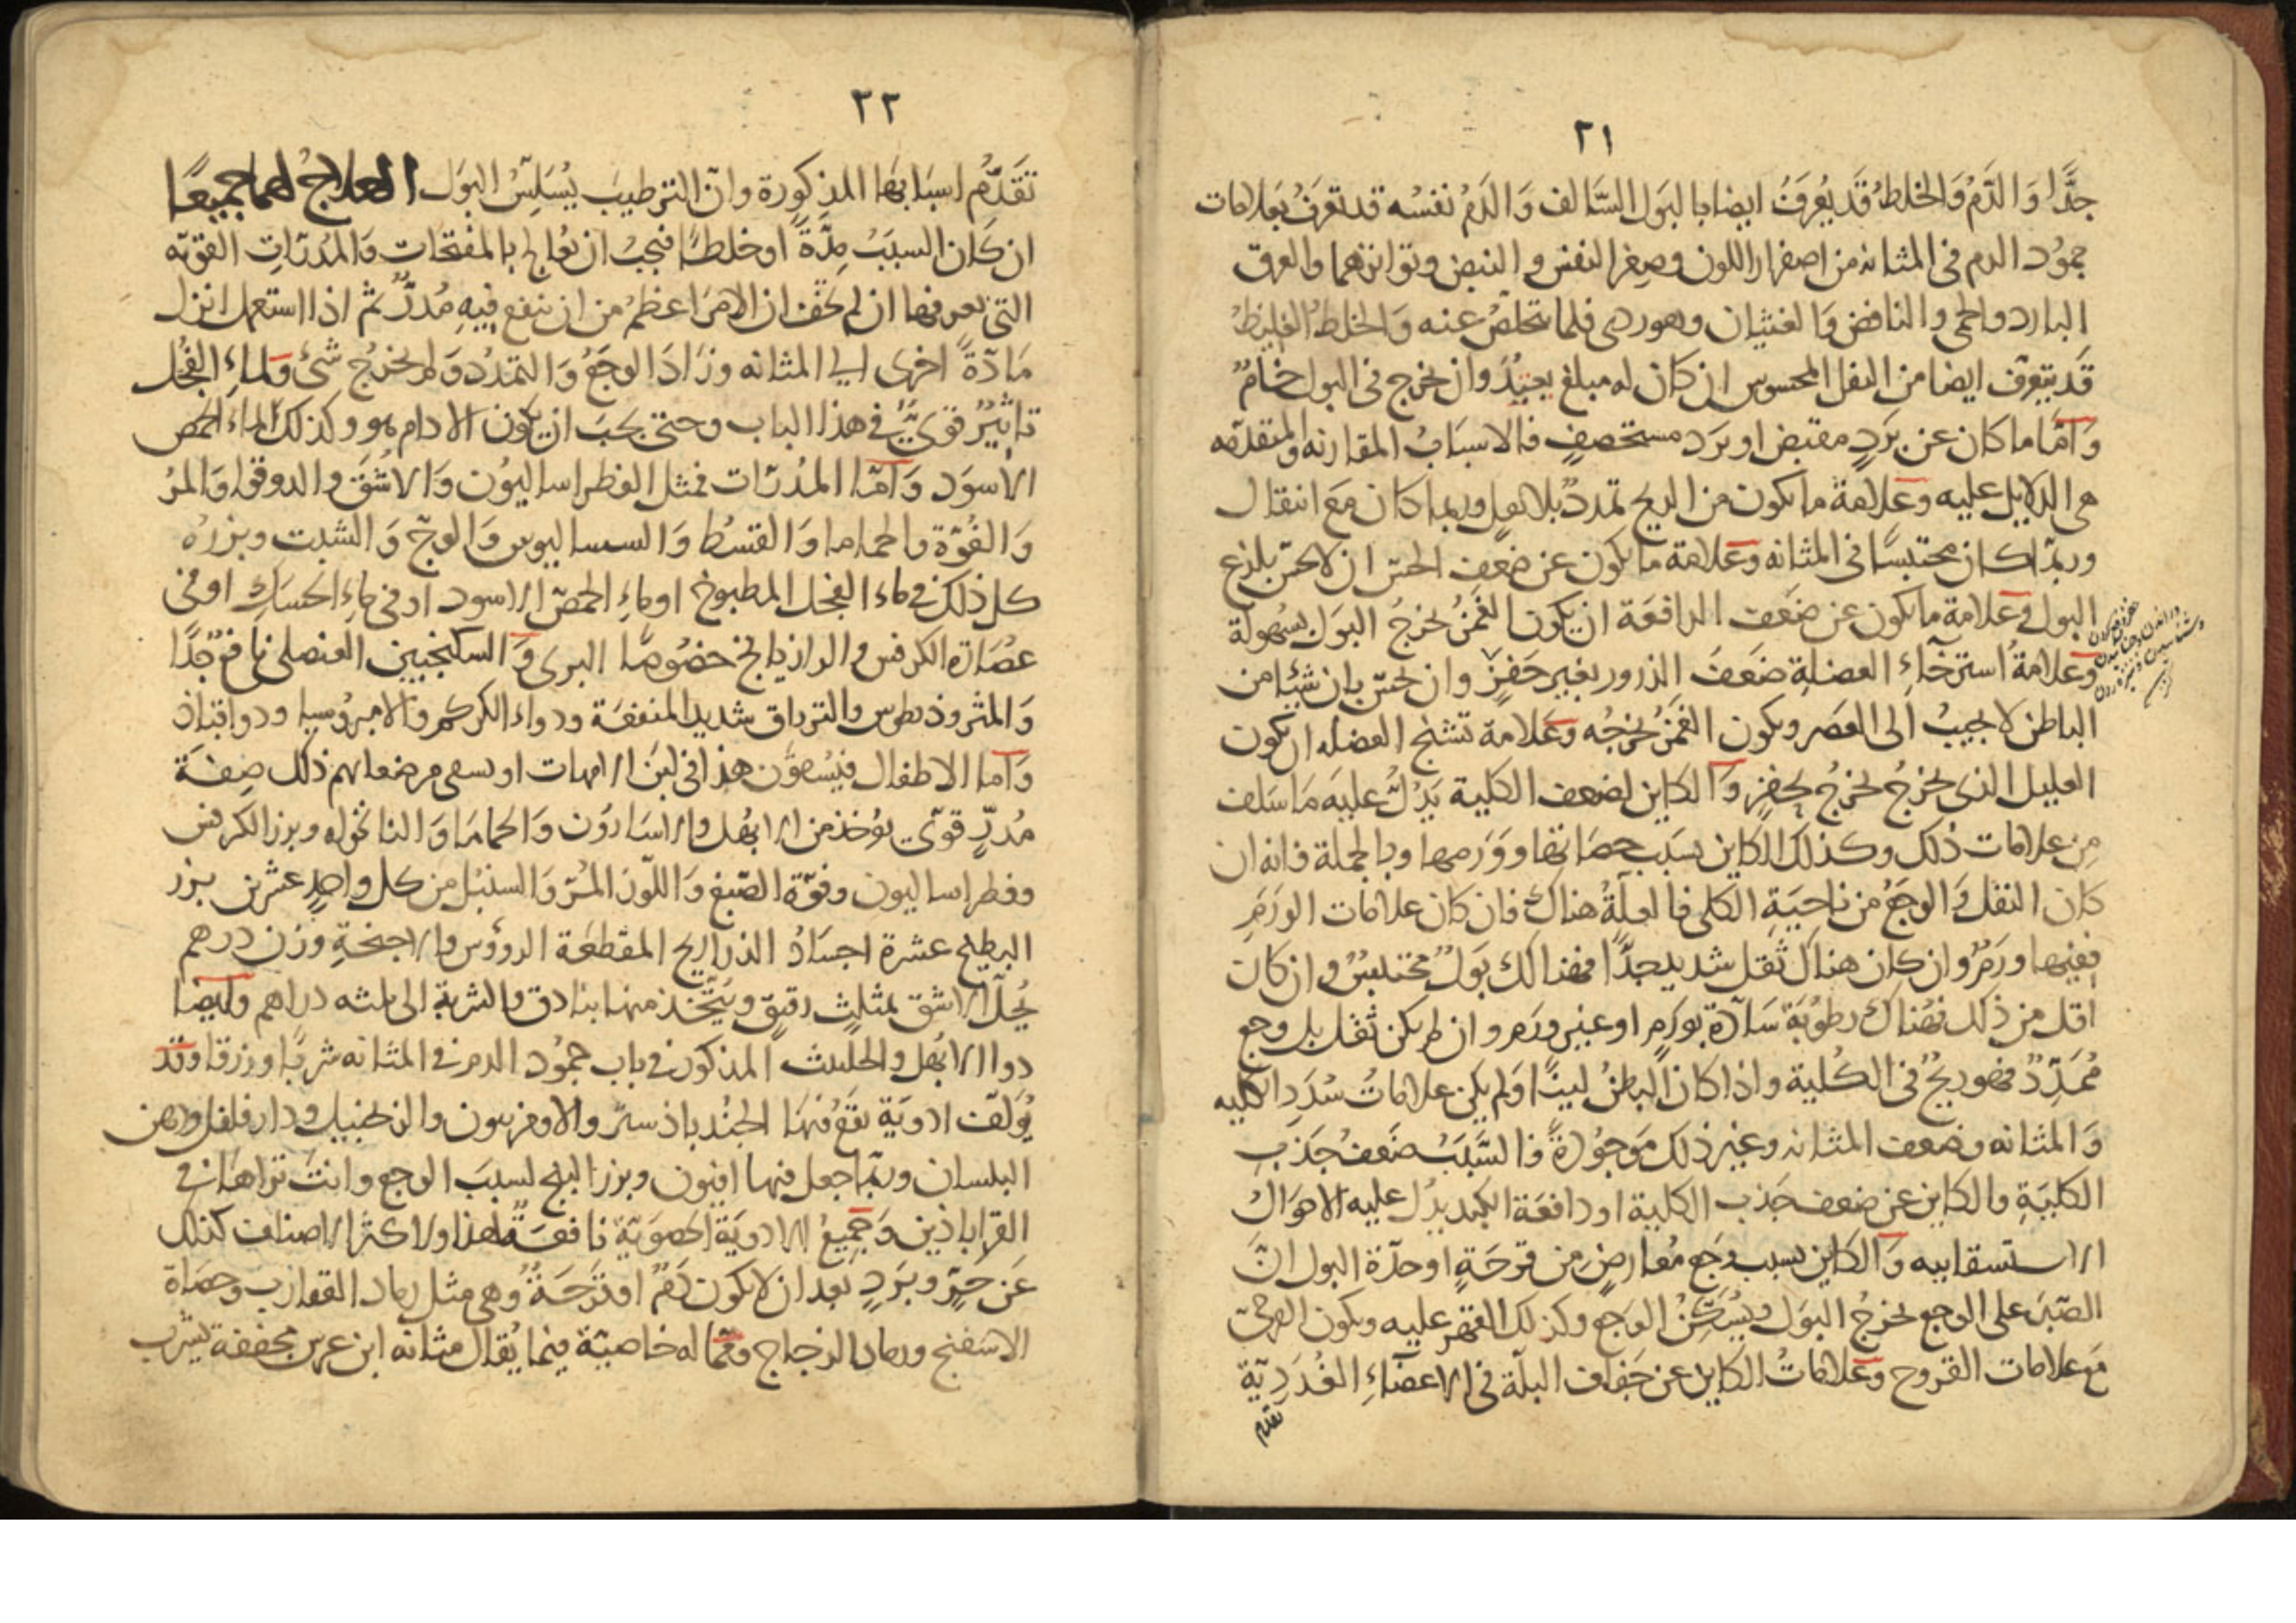 ٢١
جدًّا وَالدَّمُ وَالخلطُ قَد يُعرَفُ ايضا بالبَول السَّالف وَالدَمُ نفسُه قد تعرَفُ بعَلامات
جمُود الدم فى المثانه من اصفرار اللون وصِغر النفس والنبض وتواترهما والعرق
البارد والحمى والنافض وَالغثيان وهو ردى فلما يتخلصُ عنه وَالخلطُ الغليظُ
قَد يتعرّف ايضا من الثفل المحسوس ان كان له مبلغ يعتدُّ وان يخرج فى البول خامٌ
وَامّا ما كان عن بَردٍ مقبض او بَرَد مستحصفٍ فالاسبَابُ المقارنه والمتقدّمه
هى الدلايل عليه وعَلامة ما يكون من الريح تمددٌ بلا ثقلٍ وربما كان مَع انتقال
وربّما كان محتبسًا فى المثانه وعَلامة ما يكون عن ضعفِ الحسّ ان لا يحسّ بلذع
البول وعَلامة ما يكون عن ضَعف الدافعَة ان يكون الغَمزُ يُخرجُ البَولَ بسُهولَة
وَعلامَةُ استرخَآءِ العضلةِ ضَعفَ الذرور بغير حَفزٍ وان يحسّ بان شيئا من
الباطن لا يجيبُ الى العَصر ويكون الغمَزُ يخرجُه وعَلامة تشنج العضله ان يكون
القليل الذى يخرجُ يخرجُ بحَفزٍ وَالكاين لضعف الكلية يَدُلُّ عليهَ مَا سَلف
مِن علامات ذلك وكذلك الكاين بسَبب حصَاتها ووَرَمها وبالجملة فانه ان
كان الثقل وَالوجَعُ من ناحيَةِ الكلى فالعلّةُ هناك فان كان علامات الورَمِ
ففيها ورَمٌ وان كان هناك ثقل شديد جدًّا فهنالك بَولٌ مختبسٌ وان كان
اقل من ذلك فهُناك رطوُبَة سَآدّة بورَمٍ او غير ورَم وان لم يكن ثقل بل وجع
مُمَدِّدٌ فهو ريحٌ فى الكُلية واذا كان البَاطنُ لينًا وَلم يكن علاماتُ سُدَدِ الكليه
وَالمثانه وضعف المثانه وغير ذلك مَوجوُدةً فالسَّبَبُ ضَعفُ جَذبِ
الكليَةِ والكاين عن ضعف جَذب الكلية او دافعَة الكبد يدُل عليه الاحوَال
الاستسقاييه وَالكاين بسبب وَجع مُعارضٍ مِن قرحَةٍ او حدّة البول انَّ
الصّبرَ على الوجع يخرجُ البَول ويُسَكّنُ الوَجع وكذلك القهر عليه ويكون القرحىّ
مَع علامات القروح وعَلاماتُ الكاين عن جَفاف البلّة فى الاعضَآءِ الغُدَدِيّة
تقدم
٢٢
تقَدّمُ اسبَابهَا المذكورة وان الترطيبَ يُسَلِسُ البَول العلاجُ لهما جميعًا
ان كَان السبَبُ مِدّةً او خلطًا فيجبُ ان يعُالج بالمفتحات وَالمُدرّاتِ القويّه
التى تعرفها ان لم تخَف ان الامرَ اعظمُ من ان ينفع فيهِ مُدرٌّ ثم اذا استعمل انزل
مَادّةً اخرى الى المثانه وزادَ الوجَعُ وَالتمدُد وَلم يخرُج شئ وَلماءِ الفجُل
تاثيرٌ قوىٌّ فى هذا الباب وحتى يجبَ ان يكون الادام هو وكذلك الماء الحمص
الاسوَد وَامّا المُدرّات فمثل الفطراساليُون وَالاشُقَ والدوقوا وَالمرُ
وَالفُوّة والحماما وَالقسُط وَالسساليوس وَالوجّ وَالشبت وبزرُه
كل ذلك فى ماء الفجل المطبوخ او ماءِ الحمصّ الاسود او فى ماءِ الحسَك او فى
عصَارة الكرفس والرازيانج خصُوصًا البرى وَالسكنجبين العنصلى نافعٌ جدًّا
وَالمثروذيطوس والترياق شديد المنفعَة ودواء الكركم والامروُسيا ودواقباذ
وَاما الاطفال فيُسقوَن هذا فى لبَن الامهات او يسقى مرضعاتهم ذلك صِفَة
مُدرٍّ قوىّ يوُخذ من الابهُل والاسَارُون وَالحمامَا وَالنانخواه وبزر الكرفس
وفطراساليون وفوّة الصّبغ وَاللّوز المُرّ وَالسنبل من كل واحدٍ عشرين بزر
البطيخ عشرة اجسَادُ الذراريح المقطعَة الروؤس والاجنحةِ وزن درهم
يُحلّ الاشق بمثلثٍ رقيقٍ ويُتّخذ منها بنادق والشربة الى ثلثه دراهم وايضا
دوا الابهُل والحلتيت المذكور فى باب جموُد الدم فى المثانه شربًا وزرقا وقد
يُولَف ادويَة تقَع فيهَا الجُندباذستر والافربيون والزنجبيل ودارفلفل ودهن
البلسان وربّما جعل فيها افيون وبزر البنج لسببَ الوجع وانت تراهَا فى
القراباذين وَجميعُ الادويَة الحصَويّة نافعَةٌ لهذا ولاكثر الاصناف كذلك
عَن حَرٍّ وبرَدٍ بعد ان لا يكون وَرَمٌ او قرَحَةٌ وُهى مثل رماد العقارب وحصَاة
الاسفنج ورماد الزجاج وممّا له خاصيّة فيما يُقال مثانه ابن عرس مجففة يشرب